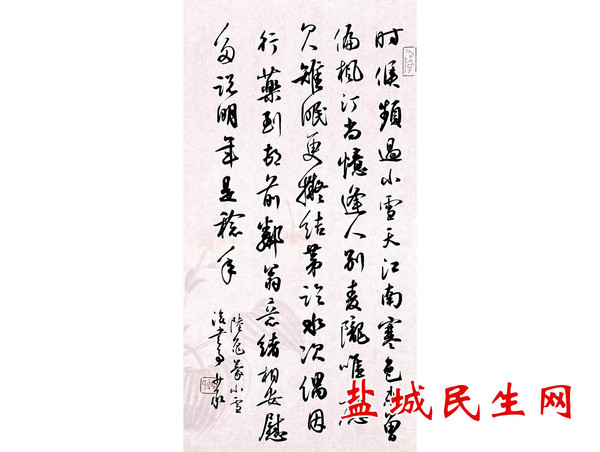 时候頻過小雪天江南寒色未曾
偏枫汀尚憶逢人别麦隴唯应
欠雉眠更擬结茅临水次偶因
行藥到村前鄰翁意绪相安慰
多说明年是稔年
陸龟蒙小雪
後书事
盐城民生网